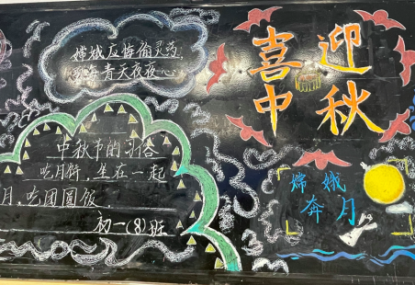 嫦娥应悔偷灵药,
碧海青天夜夜
喜迎
中秋
中秋节的习俗
吃月饼,坐在一起
月,吃团圆饭
初一(8)班
嫦娥
奔月